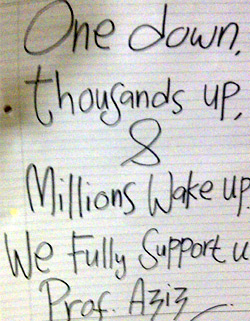 One down,
thousands up,
&
Millions Wake up.
We Fully Support u
Prof. Aziz